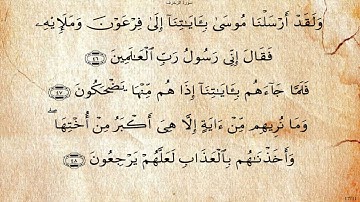 سورة الزخرف
وَلَقَدْ أَرْسَلْنَا مُوسَىٰ بِـَٔايَـٰتِنَآ إِلَىٰ فِرْعَوْنَ وَمَلَإِي۟هِۦ
فَقَالَ إِنِّى رَسُولُ رَبِّ ٱلْعَـٰلَمِينَ ٤٦
فَلَمَّا جَآءَهُم بِـَٔايَـٰتِنَآ إِذَا هُم مِّنْهَا يَضْحَكُونَ ٤٧
وَمَا نُرِيهِم مِّنْ ءَايَةٍ إِلَّا هِىَ أَكْبَرُ مِنْ أُخْتِهَا ۖ
وَأَخَذْنَـٰهُم بِٱلْعَذَابِ لَعَلَّهُمْ يَرْجِعُونَ ٤٨